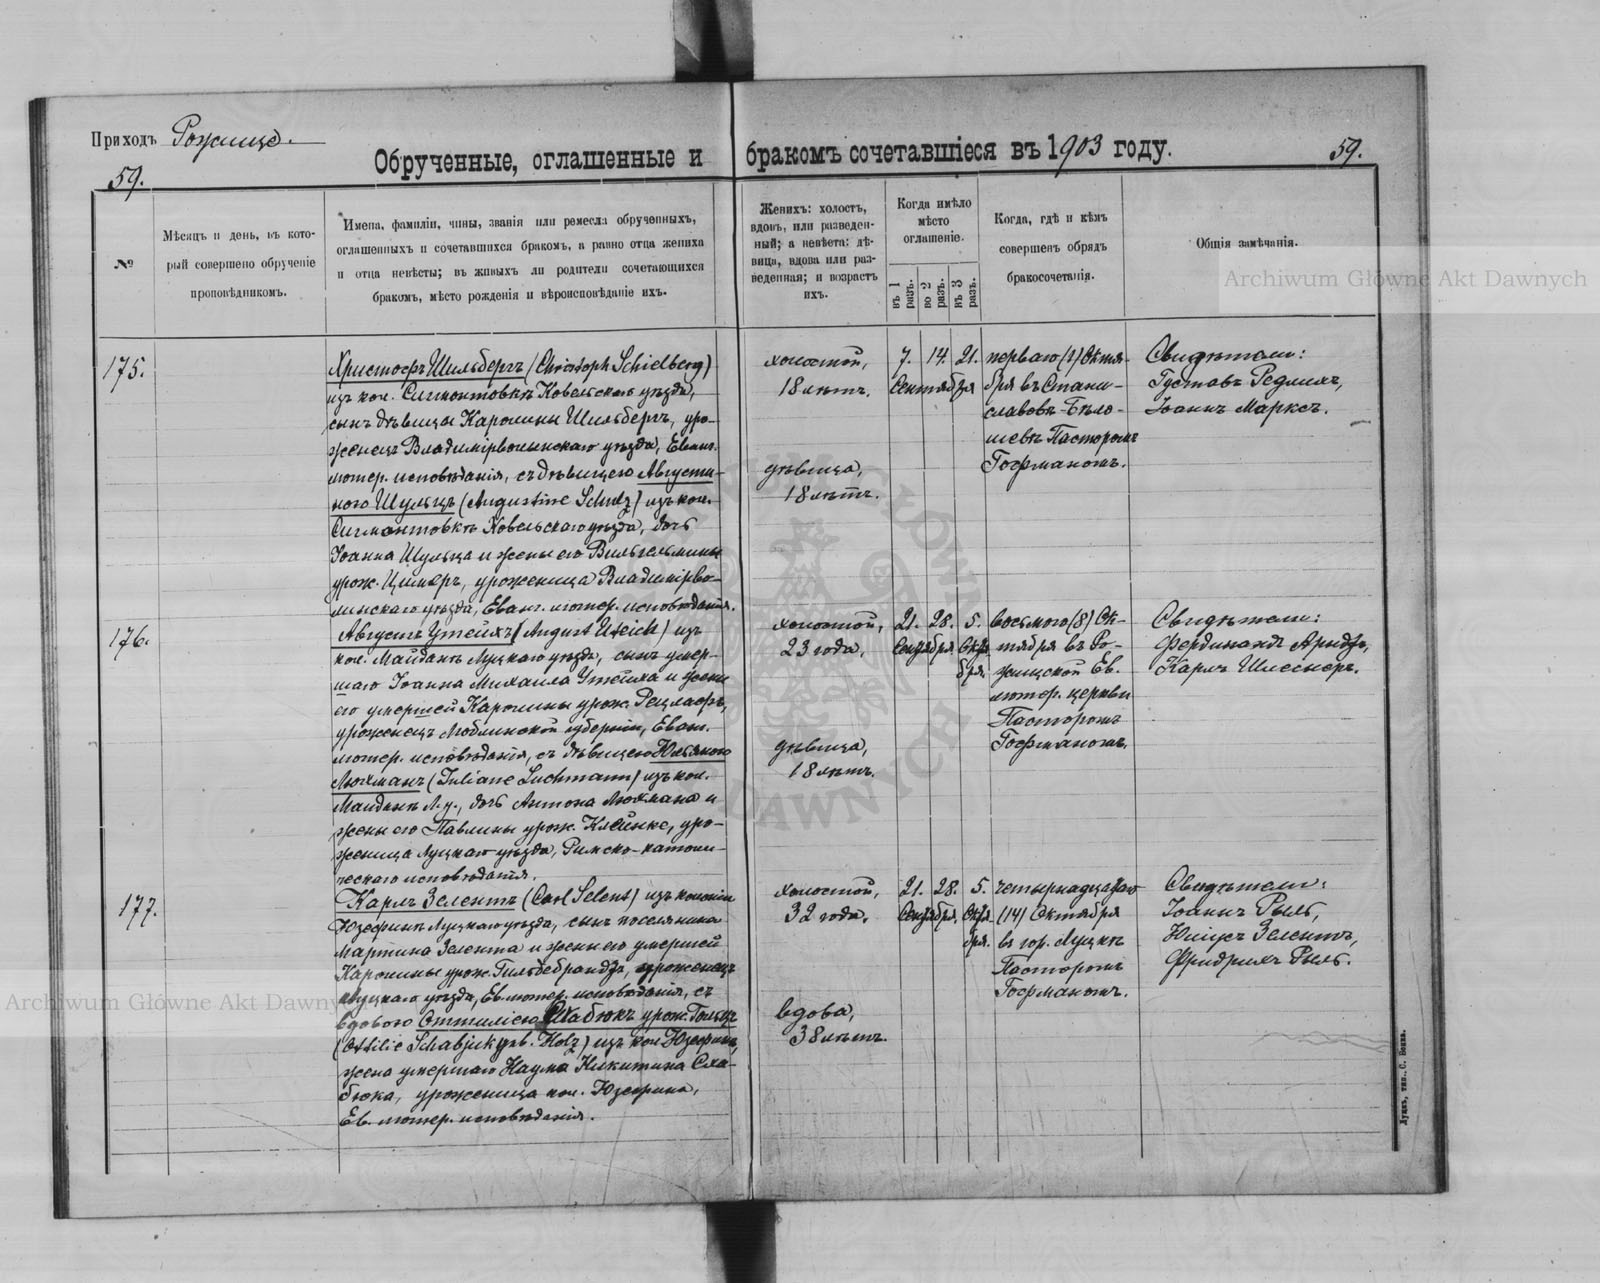 Приходъ Рожище.
Обрученные, оглашенные и бракомъ сочетавшіеся въ 1903 году.
59.
59.
№
Мѣсяцъ и день, въ кото-
рый совершено обрученіе
проповѣдникомъ.
Имена, фамиліи, чины, званія или ремесла обрученныхъ,
оглашенныхъ и сочетавшихся бракомъ, а равно отца жениха
и отца невѣсты; въ живыхъ ли родители сочетающихся
бракомъ, мѣсто рожденія и вѣроисповѣданіе ихъ.
Женихъ: холостъ,
вдовъ, или разведен-
ный; а невѣста: дѣ-
вица, вдова или раз-
веденная; и возрастъ
ихъ.
Когда имѣло
мѣсто
оглашеніе.
въ 1 разъ.
во 2 разъ.
въ 3 разъ.
Когда, гдѣ и кѣмъ
совершенъ обрядъ
бракосочетанія.
Общія замѣчанія.
175.
Христофъ Шильбергъ (Christoph Schielberg)
изъ кол. Сигмонтовкѣ Ковельскаго уѣзда,
сынъ дѣвицы Каролины Шильбергъ, уро-
женецъ Владимірволынскаго уѣзда, Еванг.
лютер. исповѣданія, съ дѣвицею Августи-
ною Шульцъ (Augustine Schulz) изъ кол.
Сигмонтовкѣ Ковельскаго уѣзда, дочь
Іоанна Шульца и жены его Вильгельмины
урож. Цимеръ, уроженица Владимірво-
лынскаго уѣзда, Еванг. лютер. исповѣданія.
холостой,
18 лѣтъ.
дѣвица,
18 лѣтъ.
7. 14. 21.
Сентября
перваго (1) Октя-
бря въ Стани-
славовъ-Бѣло-
шевѣ Пасторомъ
Гофманомъ.
Свидѣтели:
Густавъ Редлихъ,
Іоаннъ Марксъ.
176.
Августъ Утейхъ (August Uteich) изъ
кол. Майданъ Луцкаго уѣзда, сынъ умер-
шаго Іоанна Михаила Утейха и жены
его умершей Каролины урож. Рецлафъ,
уроженецъ Люблинской губерніи, Еванг.
лютер. исповѣданія, съ дѣвицею Юльяною
Люхманъ (Juliane Luchmann) изъ кол.
Майданъ Л. у., дочь Антона Люхмана и
жены его Павлины урож. Клейнке, уро-
женица Луцкаго уѣзда, Римско-католи-
ческаго исповѣданія.
холостой,
23 года.
дѣвица,
18 лѣтъ.
21. 28. 5.
Сентября Октя-
бря.
восьмого (8) Ок-
тября въ Ро-
жищской Ев.
лютер. церкви
Пасторомъ
Гофманомъ.
Свидѣтели:
Фердинандъ Аридтъ,
Карлъ Шлеснеръ.
177.
Карлъ Зелентъ (Carl Selent) изъ колоніи
Юзефинъ Луцкаго уѣзда, сынъ поселянина
Мартина Зелента и жены его умершей
Каролины урож. Гильдебрандтъ, уроженецъ
Луцкаго уѣзда, Ев. лютер. исповѣданія, съ
вдовою Оттилією Шабюкъ урож. Гольцъ
(Ottilie Schabjuk geb. Holz) изъ кол. Юзефинъ,
жена умершаго Наума Никитина Сла-
бюка, уроженица кол. Юзефина,
Ев. лютер. исповѣданія.
холостой,
32 года.
вдова,
38 лѣтъ.
21. 28. 5.
Сентября. Октя-
бря.
четырнадцатаго
(14) Октября
въ гор. Луцкѣ
Пасторомъ
Гофманомъ.
Свидѣтели:
Іоаннъ Рыль,
Юліусъ Зелентъ,
Фридрихъ Рыль.
Луцкъ, тип. С. Бонка.
Archiwum Główne Akt Dawnych
Archiwum Główne Akt Dawnych